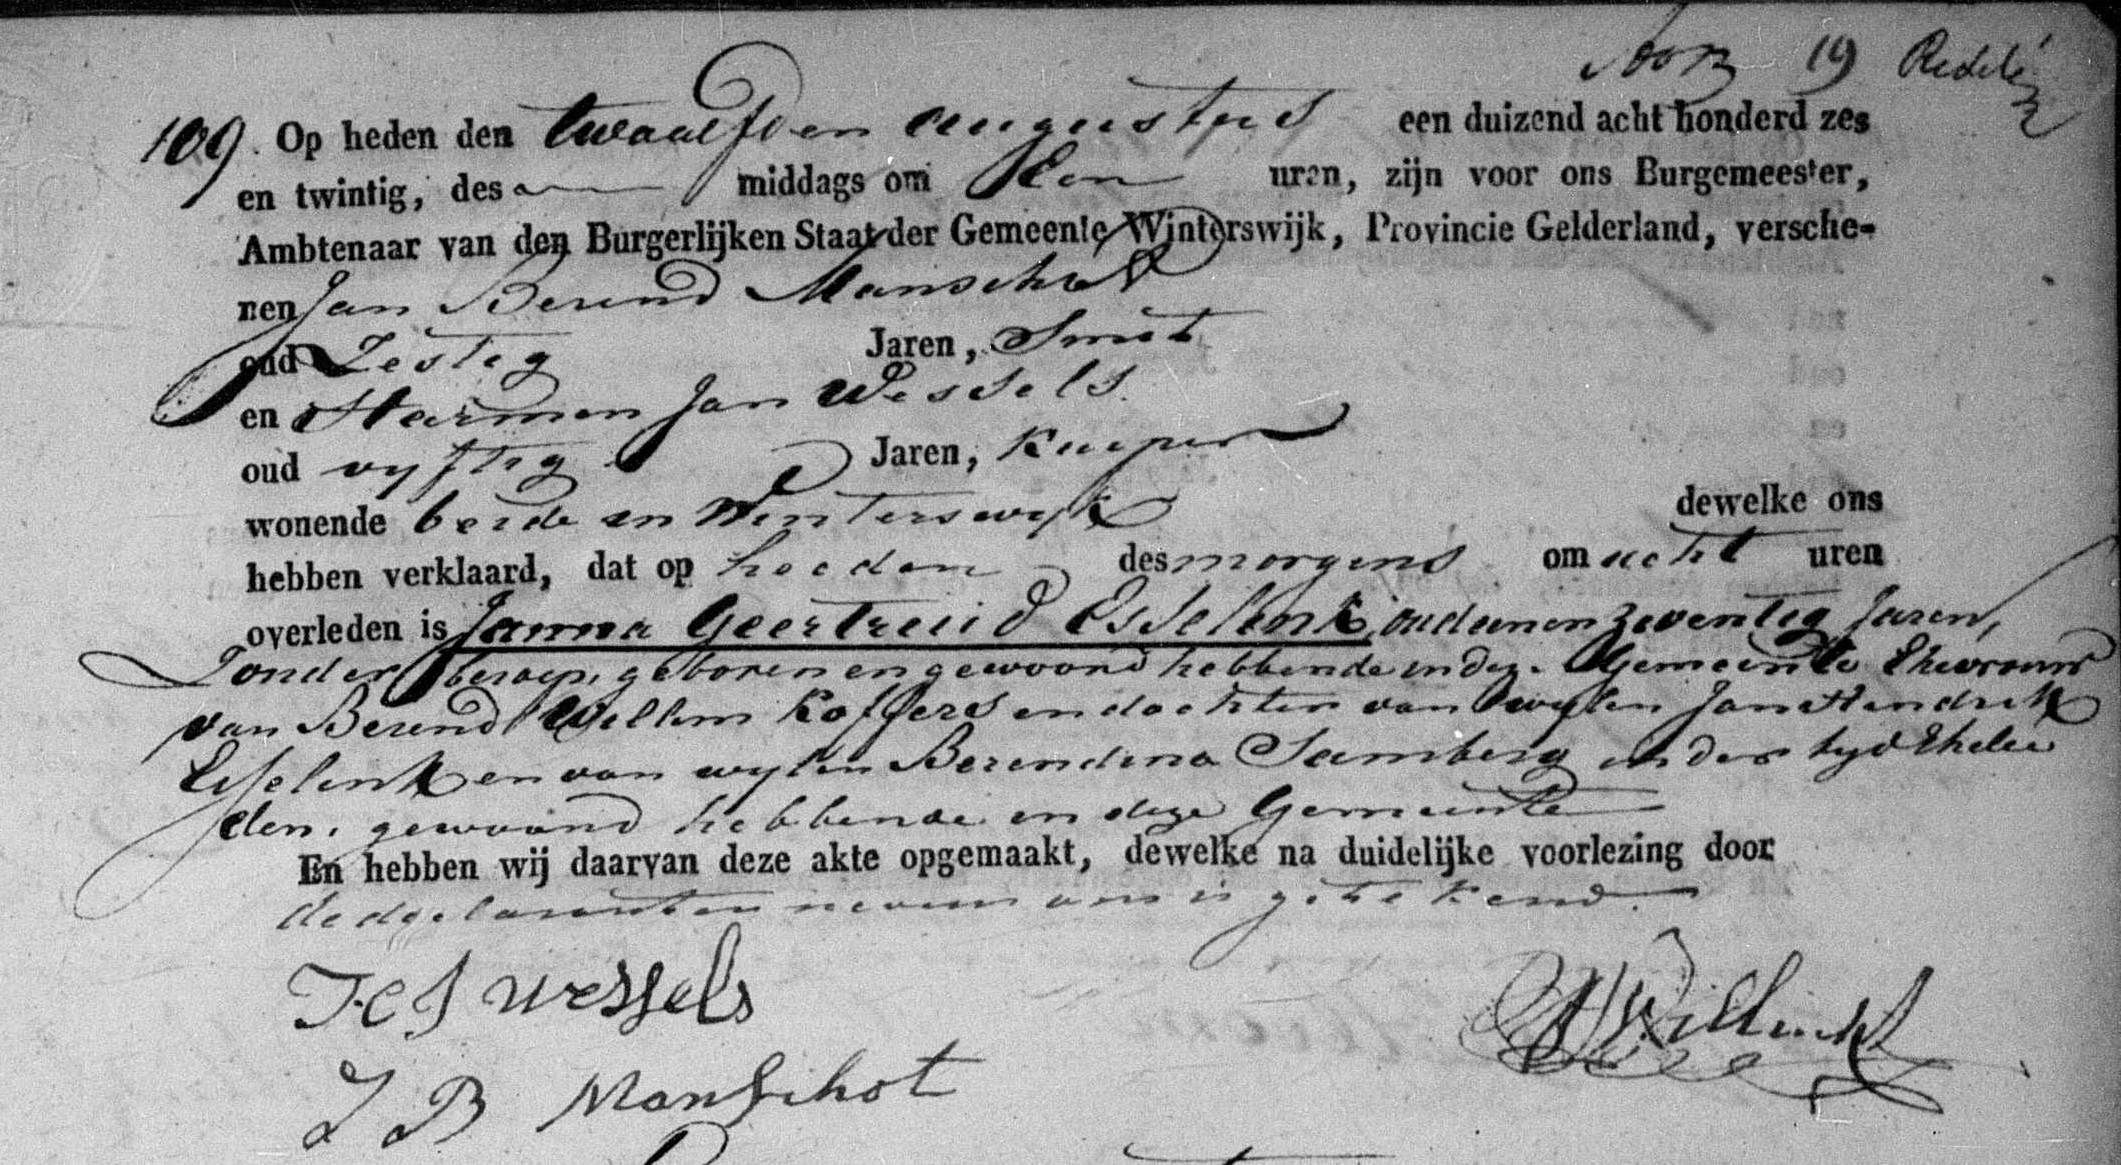 19
109. Op heden den twaalfden augustus een duizend acht honderd zes
en twintig, des middags om Een uren, zijn voor ons Burgemeester,
Ambtenaar van den Burgerlijken Staat der Gemeente Winterswijk, Provincie Gelderland, versche-
nen Jan Berend Manschot
oud Zestig Jaren, Smit
en Harmen Jan Wessels.
oud vyftig Jaren, Kuiper
wonende beide in Winterswyk dewelke ons
hebben verklaard, dat op heeden des morgens om acht uren
overleden is Janna Geertruid Esselink, oud eenen zeventig Jaren,
Zonder beroep, geboren en gewoond hebbende in deze Gemeente Ehevrouw
van Berend Willem Koffers en dochter van wylen Jan Hendrik
Esselink en van wylen Berendina Samberg in der tyd Ehelie
den, gewoond hebbende in deze Gemeente
En hebben wij daarvan deze akte opgemaakt, dewelke na duidelijke voorlezing door
de declaranten nevens ons is getekend.
H J Wessels
J B Manschot
Willink